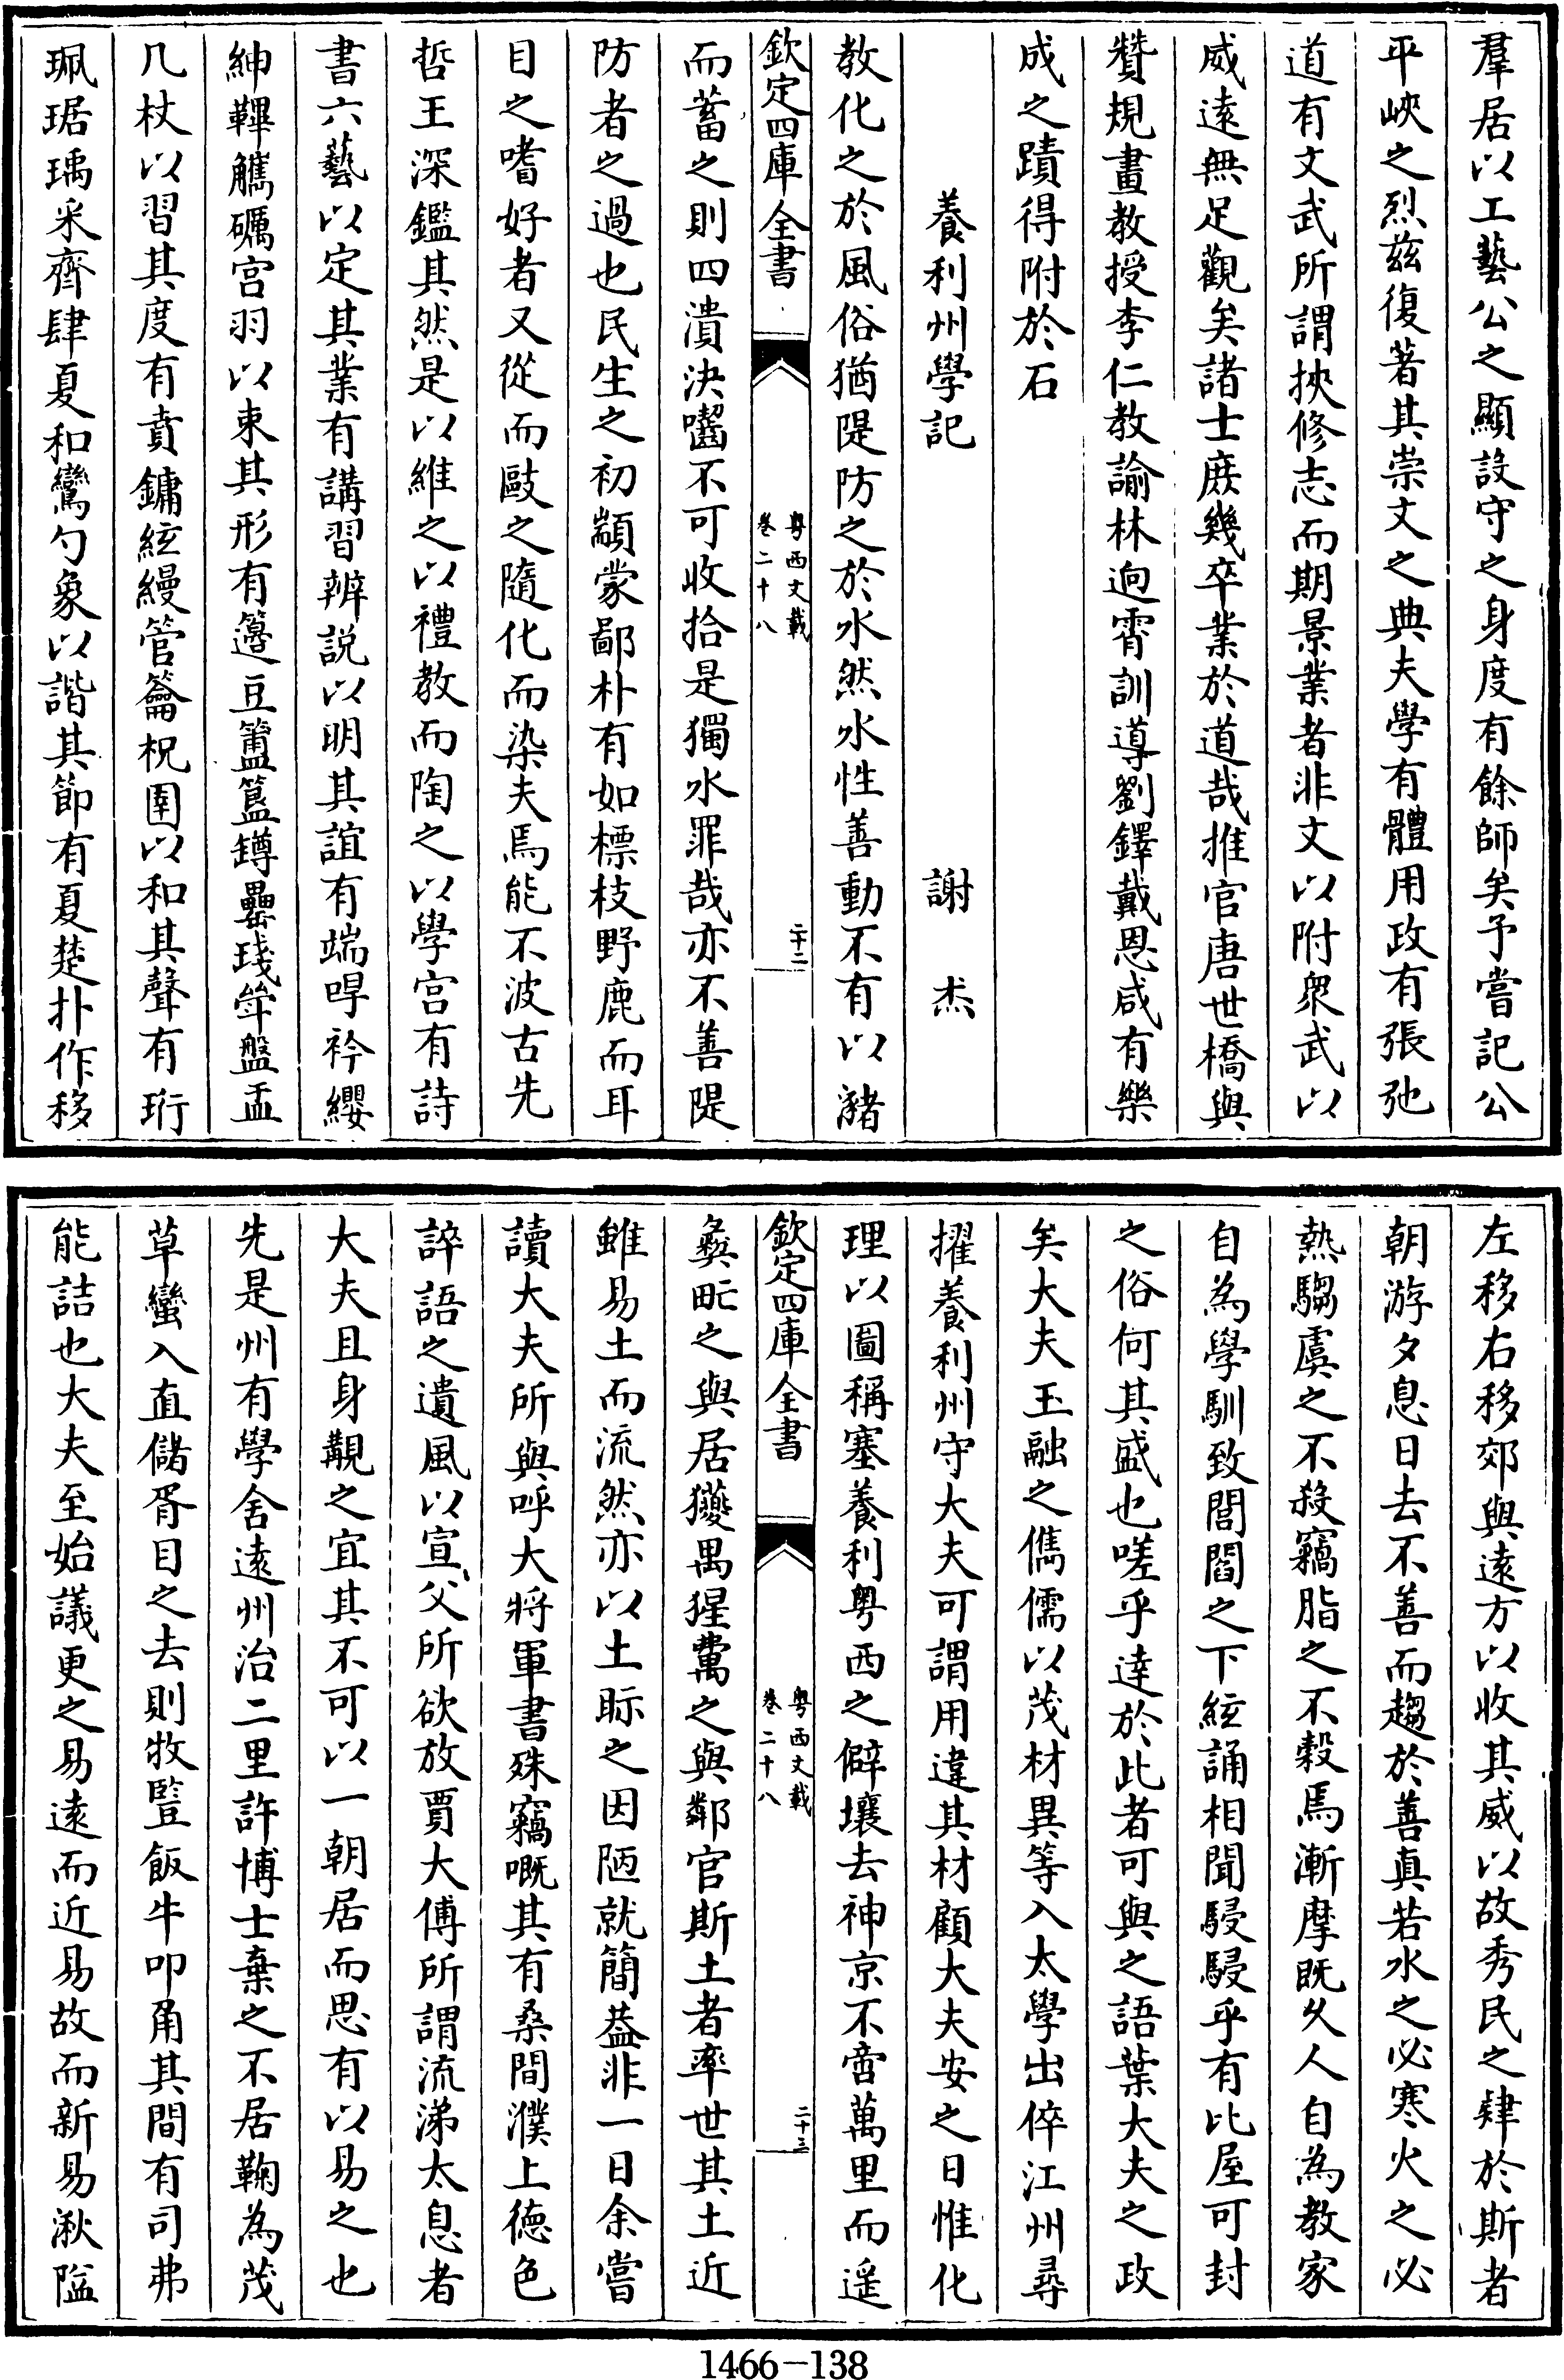 羣居以工藝公之顯設守之身度有餘師矣予嘗記公
平峽之烈茲復著其崇文之典夫學有體用政有張弛
道有文武所謂挾修志而期景業者非文以附衆武以
威逺無足觀矣諸士庶幾卒業於道哉推官唐世橋與
贊規畫教授李仁教諭林逈霄訓導劉鐸戴恩咸有樂
成之蹟得附於石
養利州學記 謝杰
教化之於風俗猶隄防之於水然水性善動不有以瀦
欽定四庫全書 粤西文載 卷二十八 二十二
而蓄之則四潰決囓不可收拾是獨水罪哉亦不善隄
防者之過也民生之初顓蒙鄙朴有如標枝野鹿而耳
目之嗜好者又從而敺之隨化而染夫焉能不波古先
哲王深鑑其然是以維之以禮教而陶之以學宫有詩
書六藝以定其業有講習辨説以明其誼有端冔衿纓
紳鞸觿礪宫羽以東其形有籩豆簠簋罇罍琖斝盤盂
几杖以習其度有賁鏞絃縵管籥柷圉以和其聲有珩
珮琚瑀采齊肆夏和鸞勺象以諧其節有夏楚扑作移
左移右移郊與逺方以收其威以故秀民之肄於斯者
朝游夕息日去不善而趨於善真若水之必寒火之必
熱騶虞之不殺竊脂之不榖焉漸摩既久人自為教家
自為學馴致閭閻之下絃誦相聞駸駸乎有比屋可封
之俗何其盛也嗟乎逹於此者可與之語葉大夫之政
矣大夫玉融之儁儒以茂材異等入太學出倅江州尋
擢養利州守大夫可謂用違其材顧大夫安之日惟化
理以圖稱塞養利粤西之僻壤去神京不啻萬里而遥
欽定四庫全書 粤西文載 卷二十八 二十三
彞甿之與居玃禺猩䙮之與鄰官斯土者率世其土近
雖易土而流然亦以土眎之因陋就簡葢非一日余嘗
讀大夫所與呼大將軍書殊竊嘅其有桑間濮上徳色
誶語之遺風以宣父所欲放賈大傅所謂流涕太息者
大夫且身覯之宜其不可以一朝居而思有以易之也
先是州有學舍逺州治二里許博士棄之不居鞠為茂
草蠻入直儲胥目之去則牧豎飯牛叩甬其間有司弗
能詰也大夫至始議更之易逺而近易故而新易湫隘
1466-138